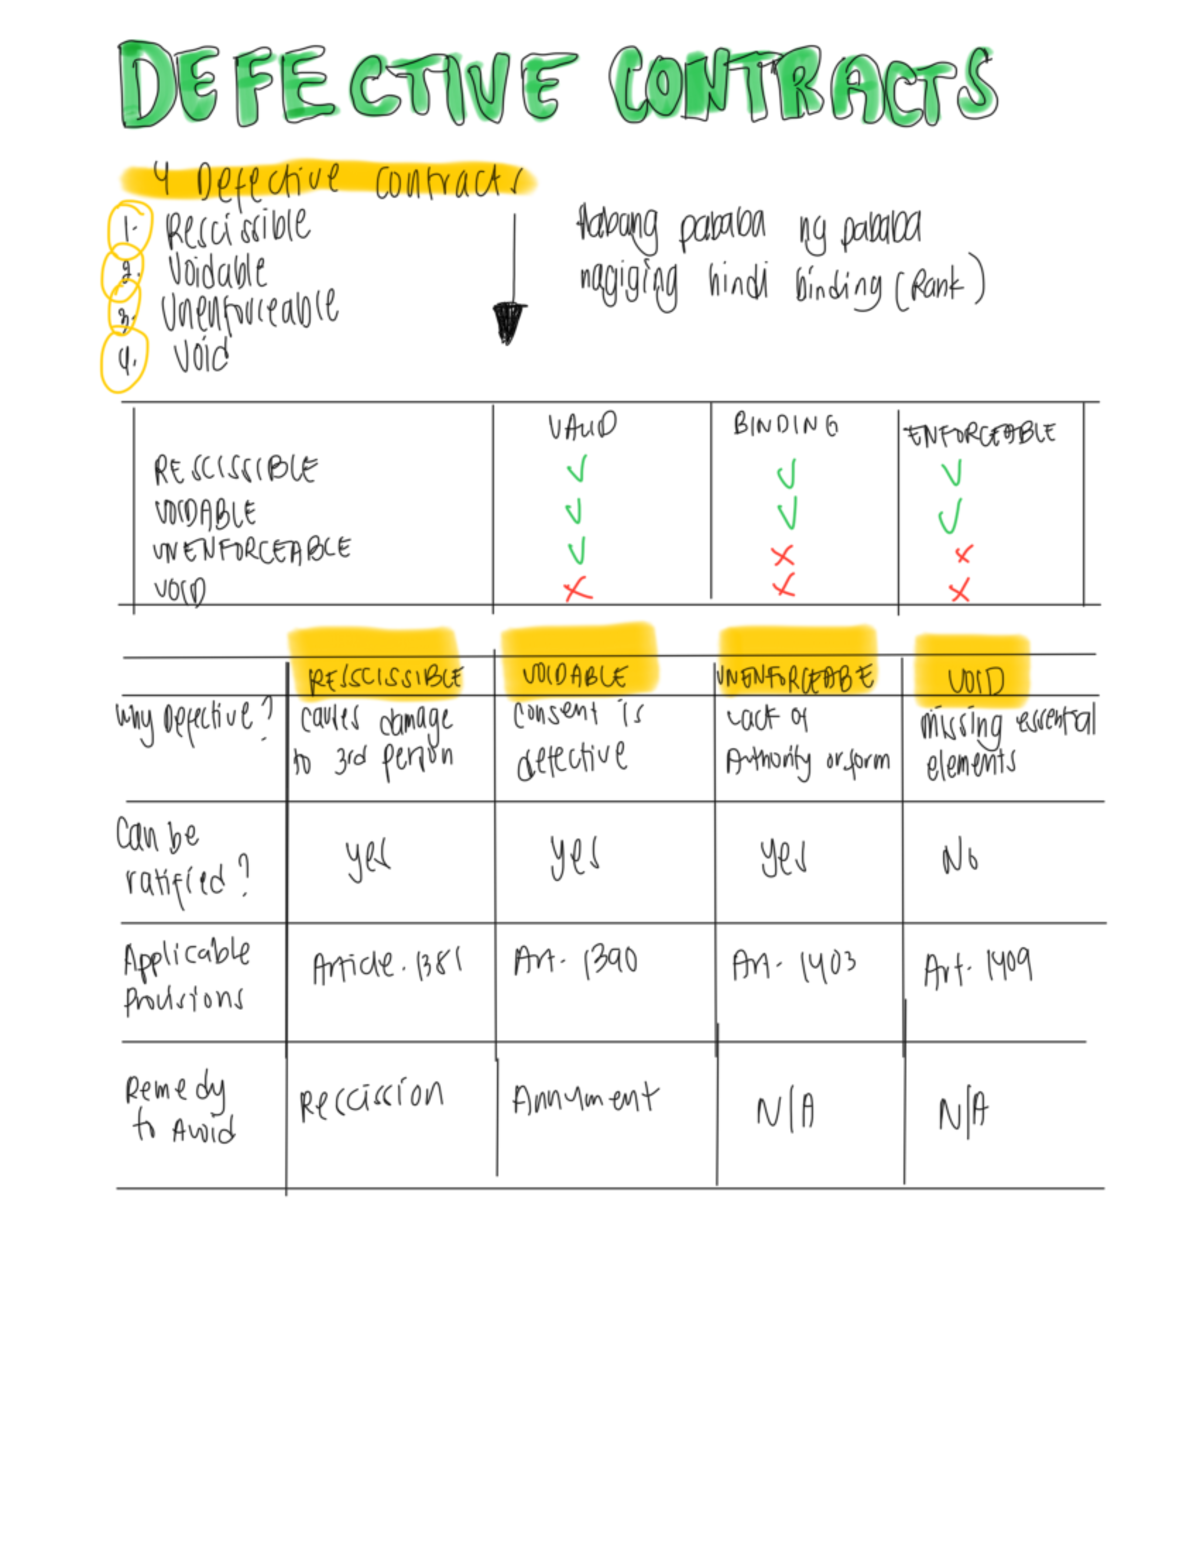 DEFECTIVE CONTRACTS
4 Defective contracts
1. Rescissible
2. Voidable
3. Unenforceable
4. Void
Habang pababa ng pababa
nagiging hindi binding (Rank)
VALID BINDING ENFORCEABLE
RESCISSIBLE ✓ ✓ ✓
VOIDABLE ✓ ✓ ✓
UNENFORCEABLE ✓ ✗ ✗
VOID ✗ ✗ ✗
RESSCISSIBLE VOIDABLE UNENFORCEABE VOID
Why Defective? causes damage consent is Lack of missing essential
to 3rd person defective Authority or form elements
Can be
ratified? yes yes yes No
Applicable Article. 1381 Art. 1390 Art. 1403 Art. 1409
Provisions
Remedy Reccission Annument N/A N/A
to Avoid